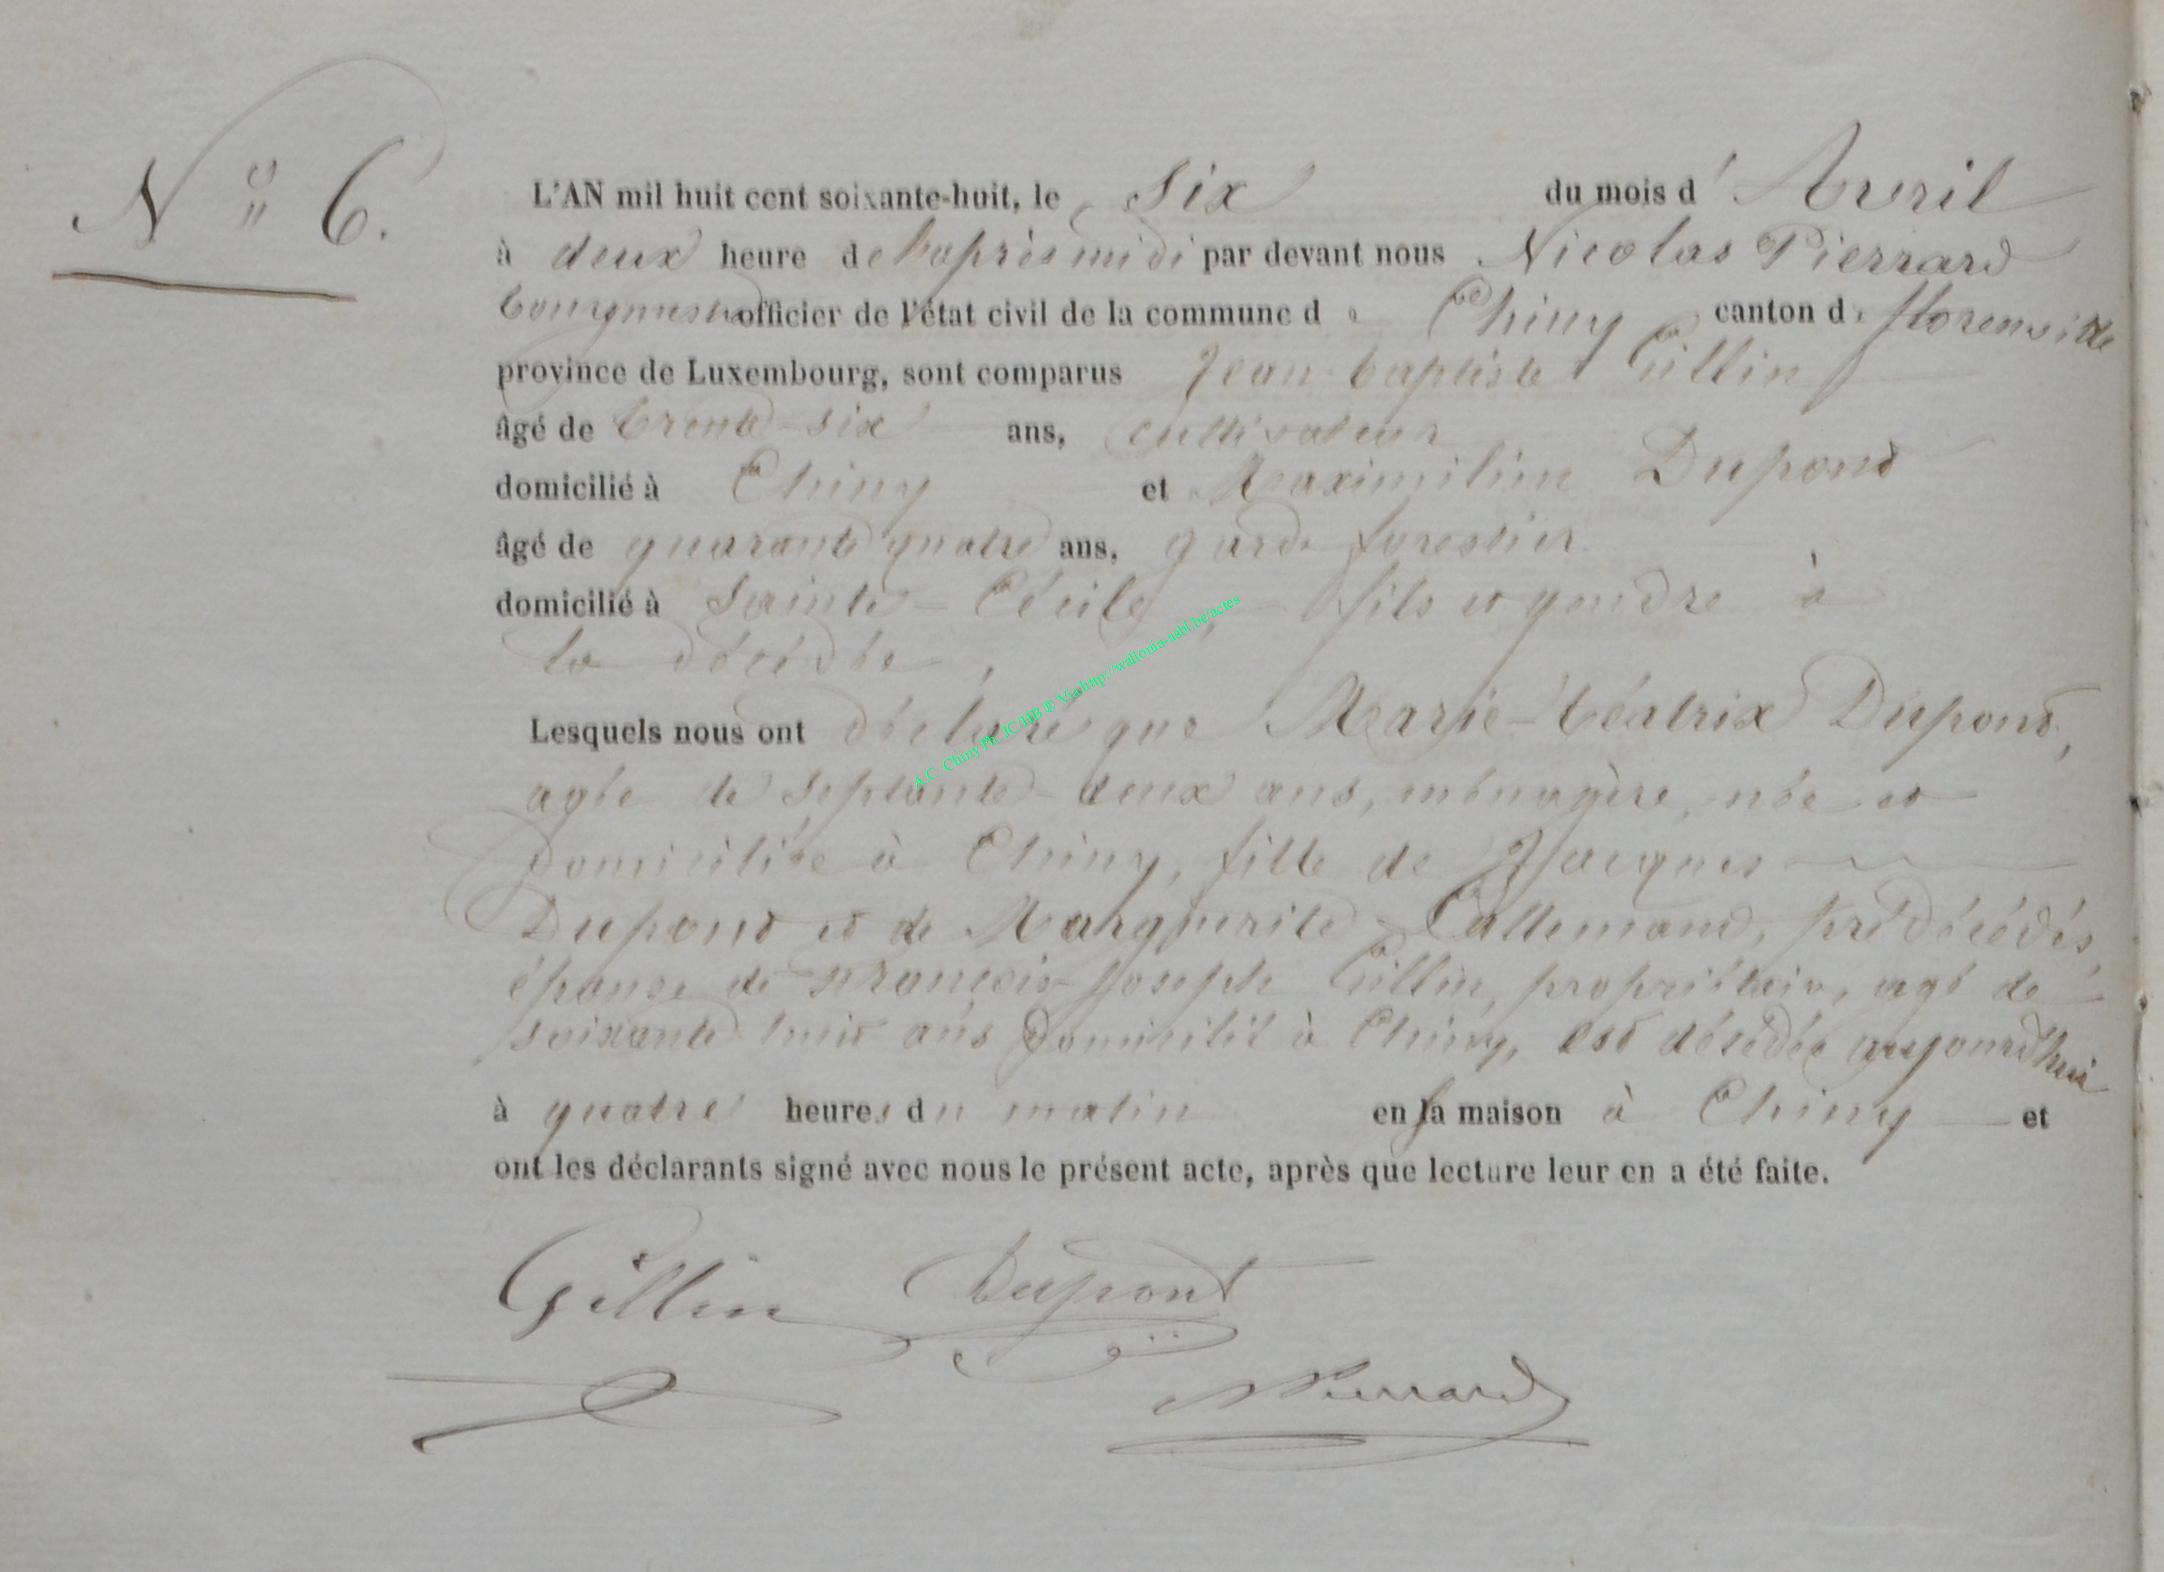 N° 6.
L'AN mil huit cent soixante-huit, le six du mois d'Avril
à deux heure de l'après midi par devant nous Nicolas Pierrard
bourgmestre officier de l'état civil de la commune de Chiny canton de florenville
province de Luxembourg, sont comparus Jean-baptiste Gillin
âgé de trente-six ans, cultivateur
domicilié à Chiny et Maximilien Dupond
âgé de quarante quatre ans, garde forestier
domicilié à Sainte-Cécile, fils et gendre à
la décédée,
Lesquels nous ont déclaré que Marie-béatrix Dupond,
agée de septante-deux ans, ménagère, née et
domiciliée à Chiny, fille de Jacques
Dupond et de Marguerite Lallemand, prédécédés,
épouse de françois-joseph Gillin, propriétaire, agé de
soixante huit ans domicilié à Chiny, est décédée aujourd'hui
à quatre heures du matin en sa maison à Chiny et
ont les déclarants signé avec nous le présent acte, après que lecture leur en a été faite.
Gillin Dupont
NPierrard
A.C. Chiny Ph. JC HB © Via http://wallonia-asbl.be/actes